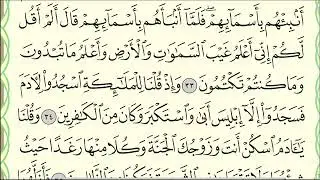 أَنۢبِئْهُم بِأَسْمَآئِهِمْ ۖ فَلَمَّآ أَنۢبَأَهُم بِأَسْمَآئِهِمْ قَالَ أَلَمْ أَقُل
لَّكُمْ إِنِّىٓ أَعْلَمُ غَيْبَ ٱلسَّمَٰوَٰتِ وَٱلْأَرْضِ وَأَعْلَمُ مَا تُبْدُونَ
وَمَا كُنتُمْ تَكْتُمُونَ ٣٣ وَإِذْ قُلْنَا لِلْمَلَٰٓئِكَةِ ٱسْجُدُوا۟ لِءَادَمَ
فَسَجَدُوٓا۟ إِلَّآ إِبْلِيسَ أَبَىٰ وَٱسْتَكْبَرَ وَكَانَ مِنَ ٱلْكَٰفِرِينَ ٣٤ وَقُلْنَا
يَٰٓـَٔادَمُ ٱسْكُنْ أَنتَ وَزَوْجُكَ ٱلْجَنَّةَ وَكُلَا مِنْهَا رَغَدًا حَيْثُ